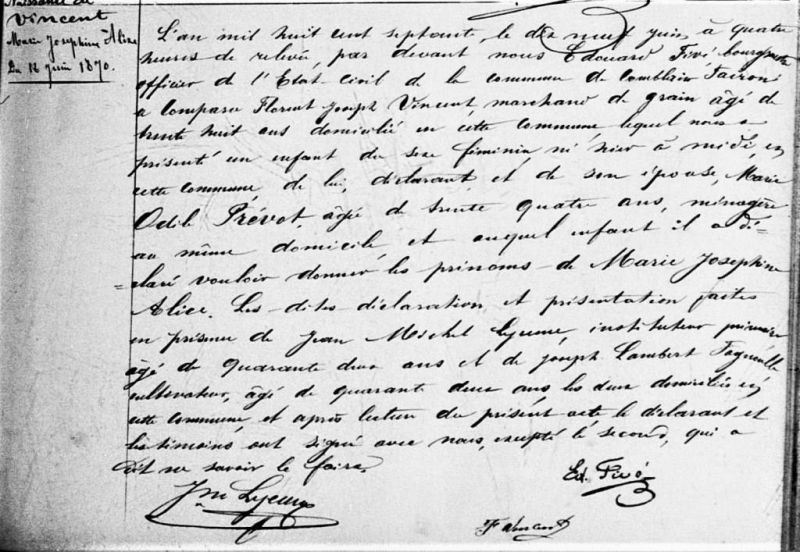 Naissance de
Vincent
Marie Josephine Alice
Du 18 Juin 1870.
L'an mil huit cent septante, le dix neuf juin, à quatre
heures de relevée, par devant nous Edouard Fivé, bourgmestre
officier de l'Etat civil de la commune de Comblain Fairon
a comparu Florent Joseph Vincent, marchand de grain âgé de
trente huit ans domicilié en cette commune lequel nous a
présenté un enfant du sexe féminin né hier à midi, en
cette commune de lui, déclarant et de son épouse, Marie
Odile Prévot, âgée de trente quatre ans, ménagère
au même domicile, et auquel enfant il a dé=
=claré vouloir donner les prénoms de Marie Josephine
Alice. Les dites déclaration et présentation faites
en présence de Jean Michel instituteur primaire
âgé de quarante deux ans et de Joseph Lambert
cultivateur, âgé de quarante deux ans les deux domiciliés en
cette commune, et après lecture du présent acte le déclarant et
les témoins ont signé avec nous, excepté le second, qui a
dit ne savoir le faire.
Ed. Fivé
Jn
F Vincent